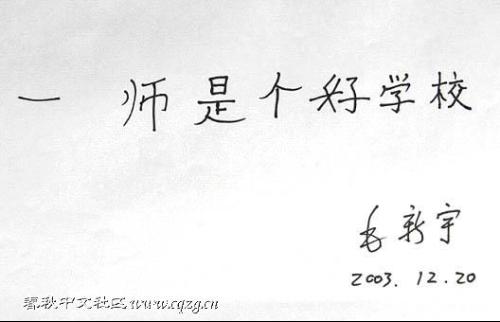 一 师是个好学校
毛新宇
2003.12.20
春秋中文社区www.cqzg.cn